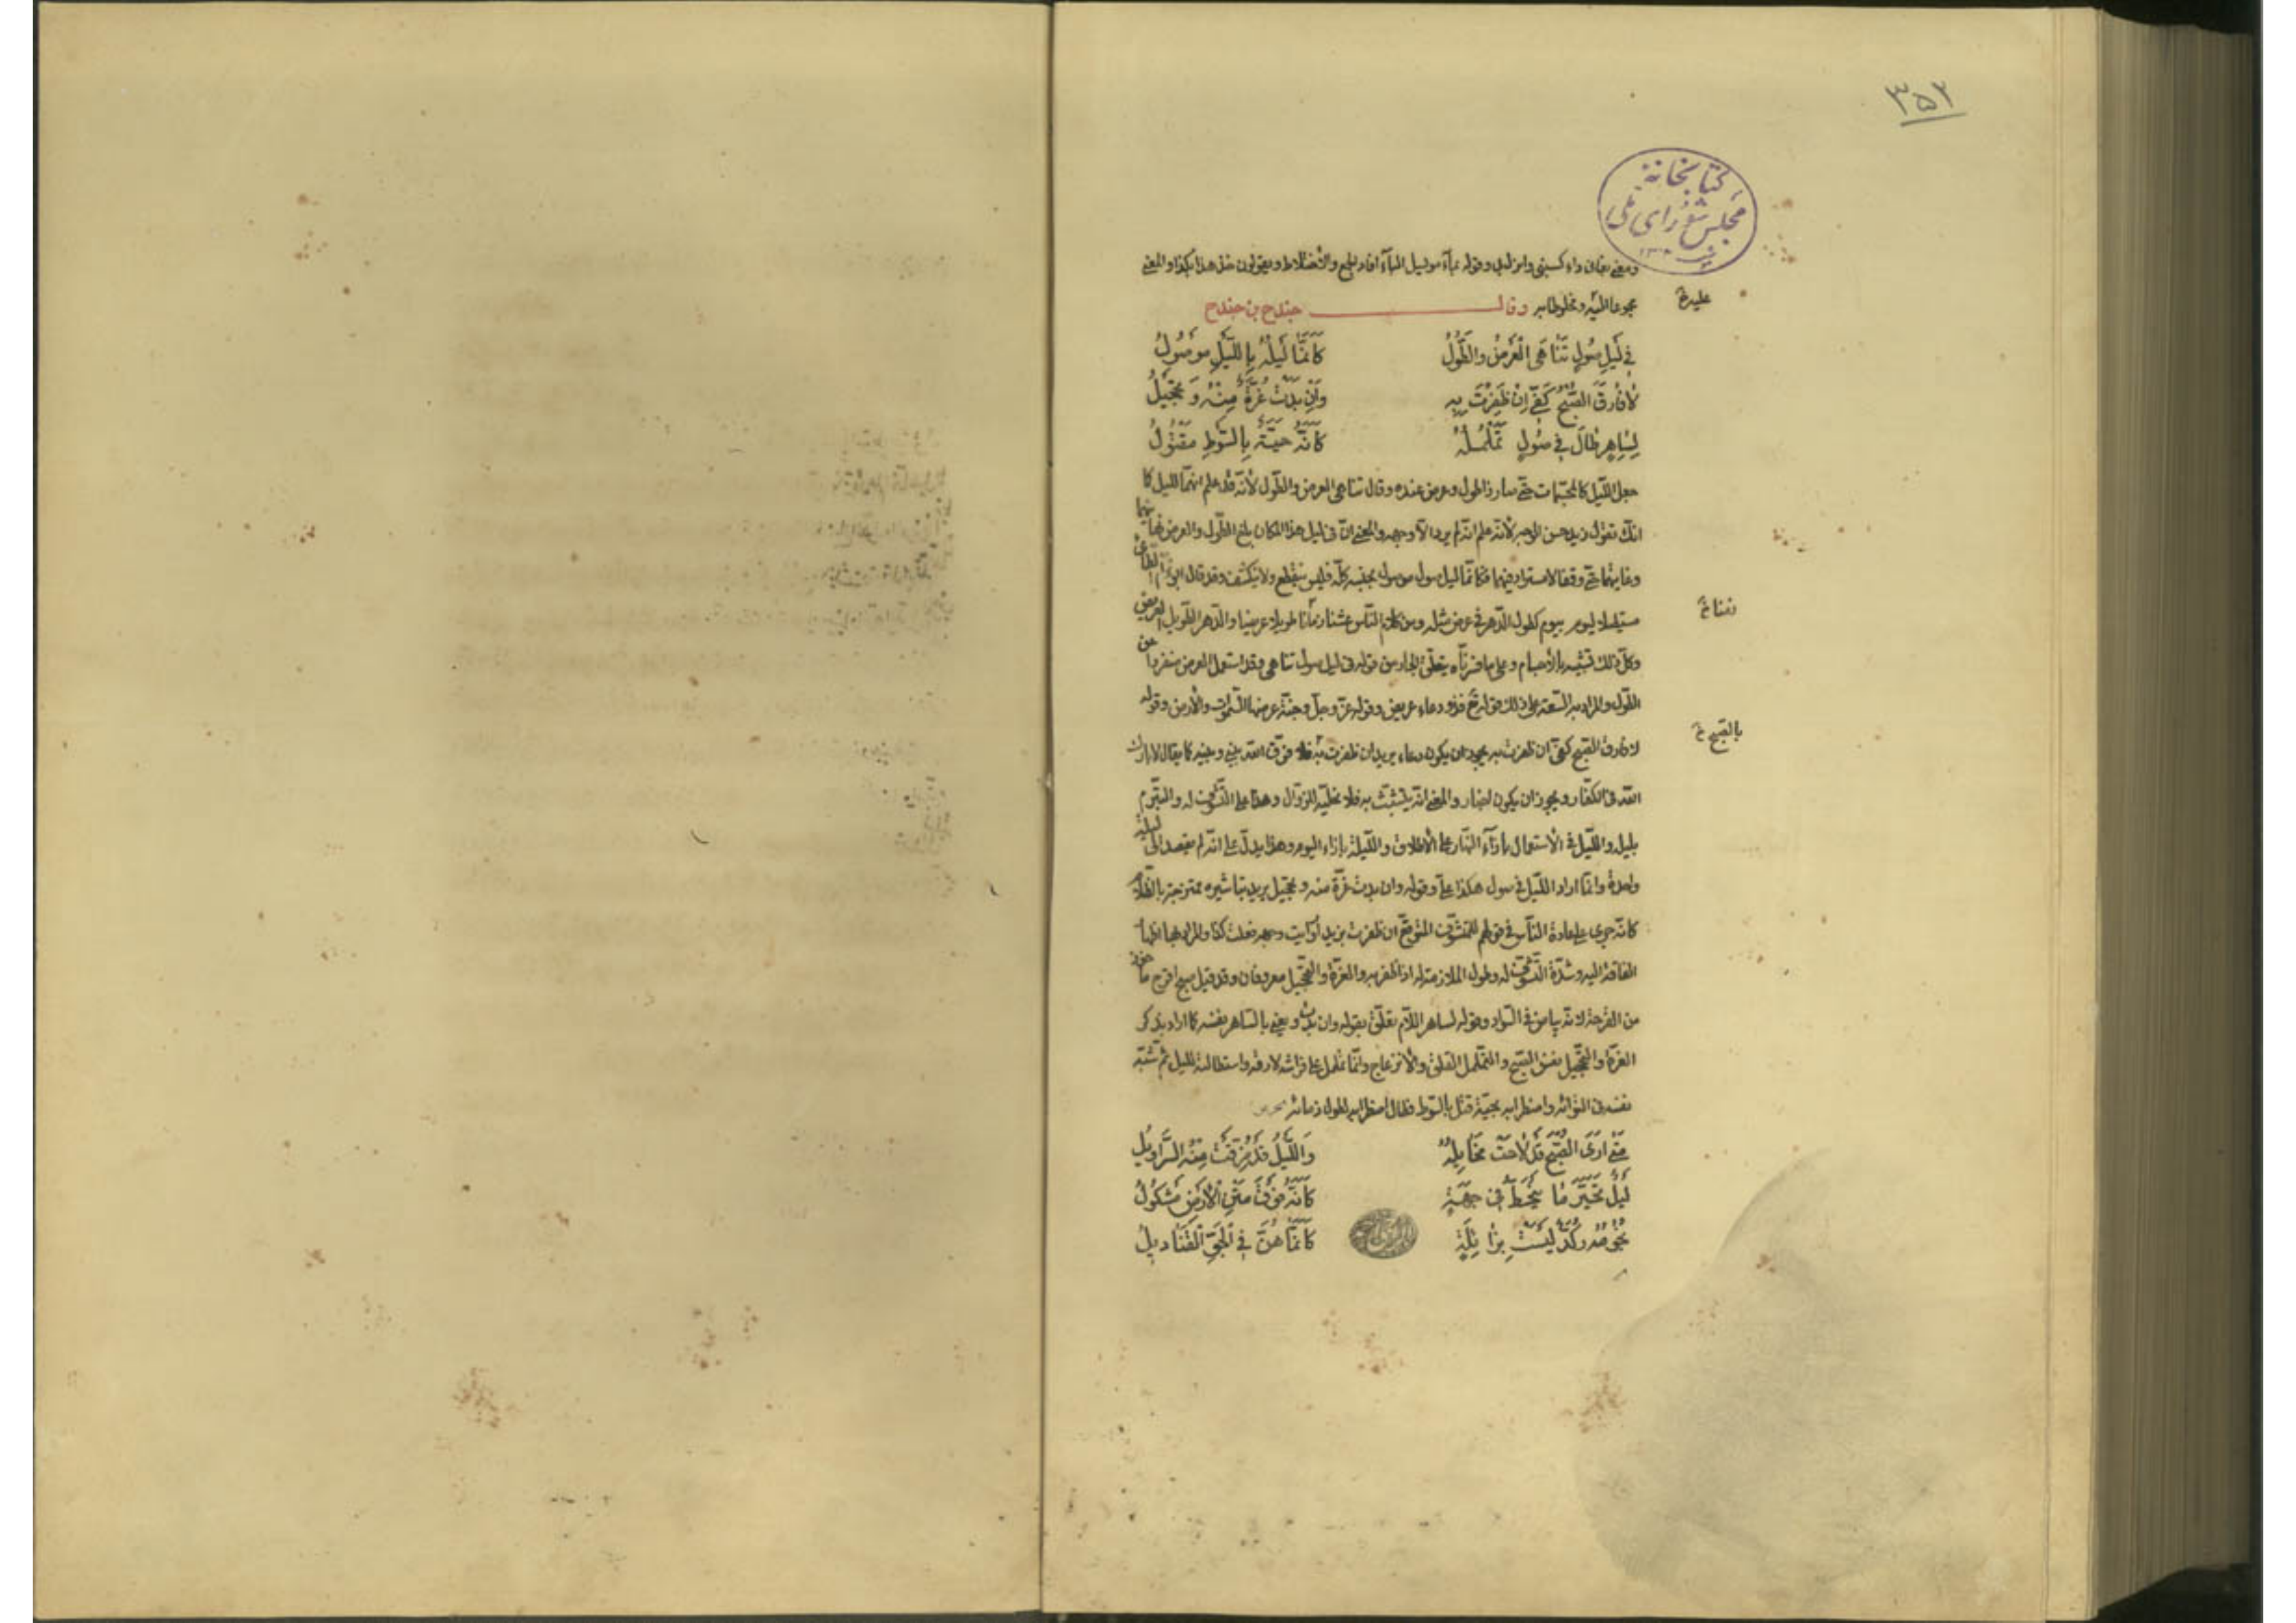 ۳۵۲
كتابخانهٔ
مجلس شورای ملی
علیه خ
مجموعا اليه ومخلوطا به وقال حندج بن حندج
في لَيلِ صُولٍ تَنَاهَى الْعَرضُ والطُّولُ كَأَنَّمَا لَيلُهُ بِاللَّيلِ مَوصُولُ
لا فارَقَ الصُّبْحُ كَفّي إن ظَفِرْتُ بِهِ وَإن بَدَت غُرَّةٌ مِنْهُ وَتَحجِيلُ
لِسَاهِرٍ طَالَ في صُولٍ تَمَلْمُلُهُ كَأَنَّهُ حَيَّةٌ بِالسَّوطِ مَقْتُولُ
جعل الليل كالمجسمات حتى صار ذا طول وعرض عنده وقال تناهى العرض والطول لأنه قد علم انهما لليل كما
انك تقول زيد حسن الوجه لأنه علم انه لم يرد الا وجهه والمعنى ان في ليل هذا المكان بلغ الطول والعرض نهايتهما
وغايتهما حتى وقفا لا مستزاد فيهما فكأنما ليل صول موصول بجنسه كله فليس ينقطع ولا ينكشف وقد قال ابو تمام الطائي
بيوم كطول الدهر في عرض مثله ومن كلام الناس عشنا زمانا طويلا عريضا والدهر الطويل العريض
وكل ذلك تشبيه بالأجسام وعلى ما فسرناه يتعلق الجار من قوله في ليل صول تناهى وقد استعمل العرض منفردا عن
الطول والمراد به السعة على ذلك قوله تع فذو دعاء عريض وقوله عز وجل وجنة عرضها السموات والأرض وقوله
لا فارق الصبح كفي ان ظفرت به يجوز ان يكون دعاء يريد ان ظفرت به فلا فرق الله بيني وبينه كما يقال لا بارك
بالصبح خ
الله في الكفار ويجوز ان يكون اخبار والمعنى انه يتشبث به فلا يخليه للزوال وهذا على التشوق له والتبرم
بليله والليل في الاستعمال بازآء النهار على الاطلاق والليلة بازاء اليوم وهذا يدل على انه لم يقصد الى ليلة
واحدة وانما اراد الليل في صول هكذا على وقوله وان بدت غرة منه وتحجيل يريد تباشيره ممتزجة بالظلام
كأنه جرى على عادة الناس في قولهم للمتشوق المتوقع ان ظفرت بزيد او رأيت وجهه فعلت كذا والمراد بهما اظهار
الفاقة اليه وشدة التشوق له وطول الملازمة له اذا ظفر به والغرة والتحجيل معروفان وقد قيل صبح اقرح مأخوذ
من القرحة لانه بياض في السواد وقوله لساهر اللام تعلق بقوله وان بدت ويعني بالساهر نفسه كما اراد بذكر
الغرة والتحجيل نفس الصبح والتململ القلق والانزعاج وانما تململ على فراشه لأرقه واستطالته لليل ثم شبه
نفسه في التوائه واضطرابه بحية قتل بالسوط فطال اضطرابه لطول ذمائه
مَتَى أَرَى الصُّبْحَ قَدْ لاحَتْ مَخَايِلُهُ وَاللَّيلُ قَدْ مُزِّقَتْ عَنْهُ السَّرَاوِيلُ
لَيلٌ تَحَيَّرَ مَا يَنْحَطُّ في جِهَةٍ كَأَنَّهُ فَوقَ مَتنِ الأَرضِ مَشكُولُ
نُجُومُهُ رُكَّدٌ لَيسَتْ بِزَائِلَةٍ كَأَنَّمَا هُنَّ في الْجَوِّ الْقَنَادِيلُ